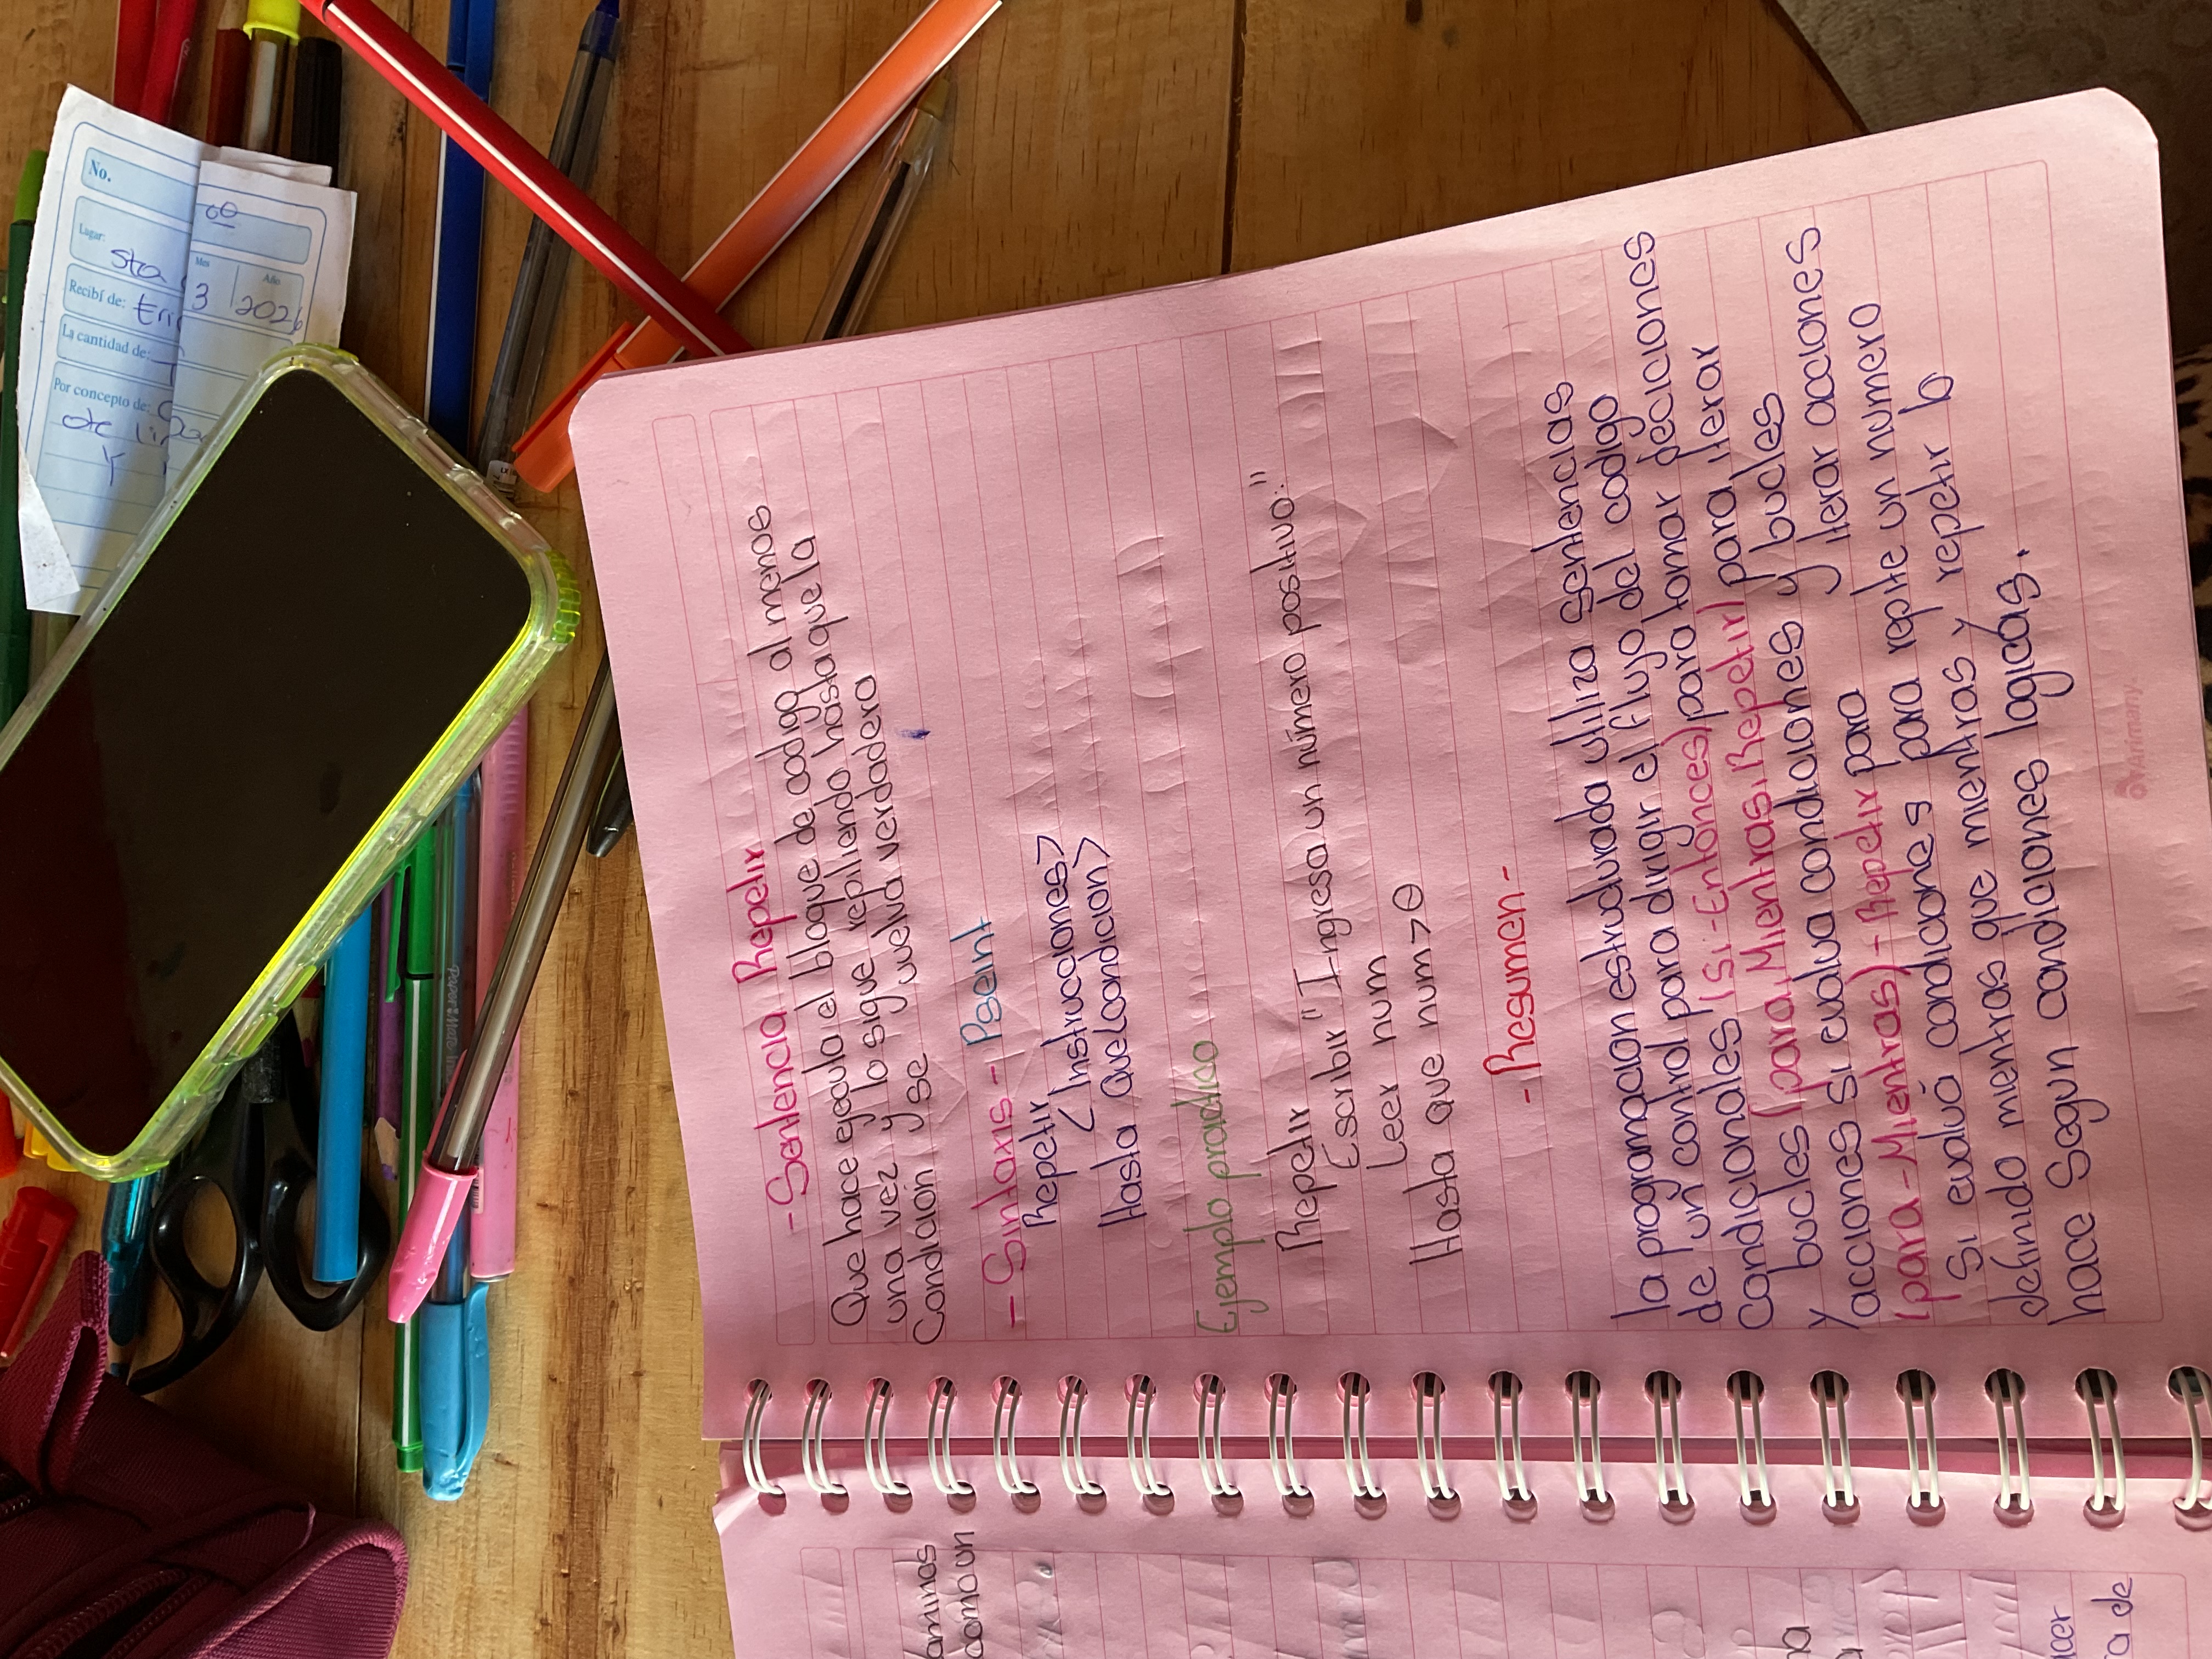 - Sentencia Repetir
Que hace ejecuta el bloque de codigo al menos
una vez y lo sigue repitiendo hasta que la
Condicion y se vuelva verdadera
- Sintaxis - Pseint
Repetir
< Instrucciones>
Hasta Que<condicion>
Ejemplo practico
Repetir
Escribir "Ingresa un número positivo:"
Leer num
Hasta que num>0
- Resumen -
la programacion estructurada utiliza sentencias
de un control para dirigir el flujo del codigo
condicionales (si - Entonces) para tomar deciciones
y bucles (para, Mientras, Repetir) para iterar
acciones si evalua condiciones y bucles
(para - Mientras) - Repetir para y iterar acciones
si evaluá condiciones para repite un numero
definido mientras que mientras y repetir lo
hace segun condiciones logicas.
Arimany
No.
Lugar:
Sta
Recibí de:
La cantidad de:
Por concepto de:
de
y
Mes
Año
3
2026
aminos
como un
acer
a de